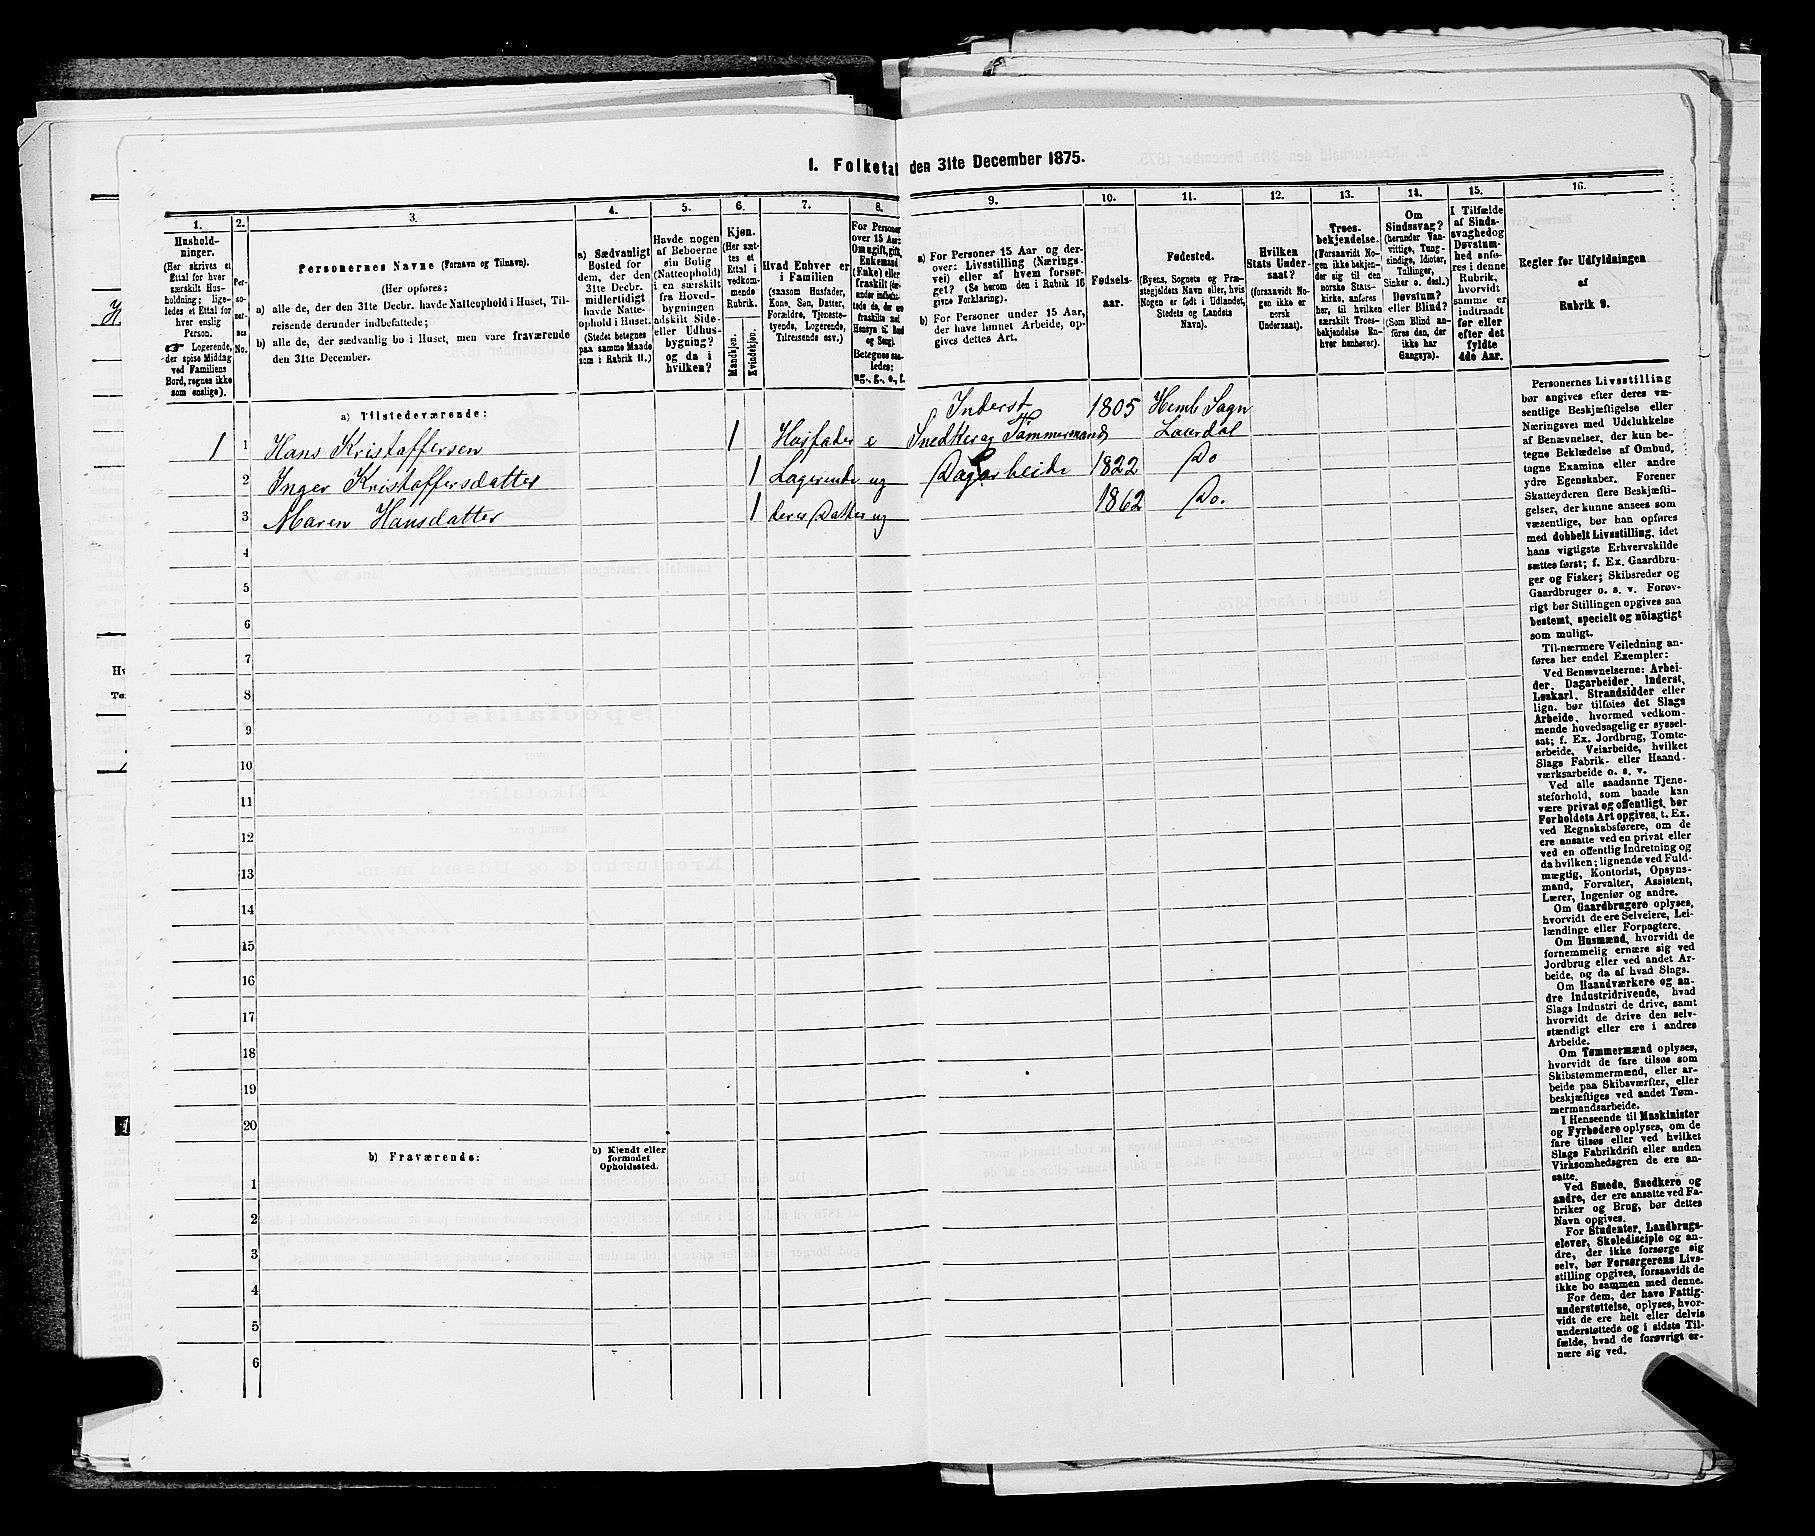 1. Folketal den 31te December 1875.
1.
2.
3.
4.
5.
6.
7.
8.
9.
10.
11.
12.
13.
14.
15.
16.
Hushold-
ninger.
(Her skrives et
Ettal for hver
særskilt Hus-
holdning; lige-
ledes et Ettal for
hver enslig
Person.
☞ Logerende,
der spise Middag
ved Familiens
Bord, regnes ikke
som enslige).
Per-
so-
ner-
nes
No.
Personernes Navne (Fornavn og Tilnavn).
(Her opføres:
a) alle de, der den 31te Decbr. havde Natteophold i Huset, Til-
reisende derunder indbefattede;
b) alle de, der sædvanlig bo i Huset, men vare fraværende
den 31te December.
a) Sædvanligt
Bosted for
dem, der den
31te Decbr.
midlertidigt
havde Natte-
ophold i Huset.
(Stedet betegnes
paa samme Maade
som i Rubrik 11.)
Havde nogen
af Beboerne
sin Bolig
(Natteophold)
i en særskilt
fra Hoved-
bygningen
adskilt Side-
eller Udhus-
bygning?
og da i
hvilken?
Kjøn.
(Her sæt-
tes et
Ettal i
vedkom-
mende
Rubrik.
Mandkjøn.
Kvindekjøn.
Hvad Enhver er
i Familien
(saasom Husfader,
Kone, Søn, Datter,
Forældre, Tjeneste-
tyende, Logerende,
Tilreisende osv.)
For Personer
over 15 Aar:
Om ugift, gift,
Enkemand
(Enke) eller
fraskilt
Betegnes saa-
ledes:
ug., g., e., f.
a) For Personer 15 Aar og der-
over: Livsstilling (Nærings-
vei) eller af hvem forsør-
get? (Se herom den i Rubrik 16
givne Forklaring).
b) For Personer under 15 Aar,
der have lønnet Arbeide, op-
gives dettes Art.
Fødsels-
aar.
Fødested.
(Byens, Sognets og Præ-
stegjeldets Navn eller, hvis
Nogen er født i Udlandet,
Stedets og Landets
Navn).
Hvilken
Stats Under-
saat?
(foraaavidt No-
gen ikke er
norsk
Undersaat).
Troes-
bekjendelse.
(Forsaavidt No-
gen ikke bekjen-
der sig til den
norske Stats-
kirke, anføres
her, til hvilken
særskilt Troes-
bekjendelse En-
hver henhører).
Om
Sindssvag?
(herunder Van-
vittige, Tung-
sindige, Idioter,
Tullinger,
Sinker o. desl.)
Døvstum?
eller Blind?
(Som Blind an-
føres den, der
ikke har
Gangsyn).
I Tilfælde
af Sinds-
svaghed og
Døvstum-
hed anfø-
res i denne
Rubrik,
hvorvidt
samme er
indtraadt
før eller
efter det
fyldte
4de Aar.
Regler for Udfyldningen
af
Rubrik 9.
a) Tilstedeværende:
1 1 Hans Kristoffersen 1 Husfader e Inderst Snedker og Tømmermand 1805 Hemb Sogn Laurdal
2 Inger Kristoffersdatter 1 Logerende ug Dagarbeide 1822 Do
3 Maren Hansdatter 1 deres Datter ug 1862 Do.
4
5
6
7
8
9
10
11
12
13
14
15
16
17
18
19
20
b) Fraværende:
b) Kjendt eller
formodet
Opholdssted.
1
2
3
4
5
6
Personernes Livsstilling
bør angives efter deres væ-
sentlige Beskjæftigelse eller
Næringsvei med Udelukkelse
af Benævnelser, der kun be-
tegne Beklædelse af Ombud,
tagne Examina eller andre
ydre Egenskaber. Forener
Skatteyderen flere Beskjæfti-
gelser, der kunne ansees som
væsentlige, bør han opføres
med dobbelt Livsstilling, idet
hans vigtigste Erhvervskilde
sættes først; f. Ex. Gaardbru-
ger og Fisker; Skibsreder og
Gaardbruger o. s. v. Forøv-
rigt bør Stillingen opgives saa
bestemt, specielt og nöiagtigt
som muligt.
Til nærmere Veiledning an-
føres her endel Exempler:
Ved Benævnelserne: Arbei-
der, Dagarbeider, Inderst,
Løskarl, Strandsidder eller
lign. bør tilføies det Slags
Arbeide, hvormed vedkom-
mende hovedsagelig er syssel-
sat; f. Ex. Jordbrug, Tomte-
arbeide, Veiarbeide, hvilket
Slags Fabrik- eller Haand-
værksarbeide o. s. v.
Ved alle saadanne Tjene-
steforhold, som baade kan
være privat og offentligt, bør
Forholdets Art opgives, t. Ex.
ved Regnskabsførere, om de
ere ansatte ved en privat eller
ved en offentlig Indretning og
da hvilken; lignende ved Fuld-
mægtig, Kontorist, Opsyns-
mand, Forvalter, Assistent,
Lærer, Ingeniør og andre.
Om Gaardbrugere oplyses,
hvorvidt de ere Selveiere, Lei-
lændinge eller Forpagtere.
Om Husmænd, hvorvidt de
fornemmelig ernære sig ved
Jordbrug eller ved andet Ar-
beide, og da af hvad Slags.
Om Haandværkere og an-
dre Industridrivende, hvad
Slags Industri de drive, samt
hvorvidt de drive den selv-
stændigt eller ere i andres
Arbeide.
Om Tømmermænd oplyses,
hvorvidt de fare tilsøs som
Skibstømmermænd, eller ar-
beide paa Skibsværfter, eller
beskjæftiges ved andet Tøm-
mermandsarbeide.
I Henseende til Maskinister
og Fyrbødere oplyses, om de
fare tilsøs eller ved hvilket
Slags Fabrikdrift eller anden
Virksomhedsgren de ere an-
satte.
Ved Smede, Snedkere og
andre, der ere ansatte ved Fa-
briker og Brug, bør dettes
Navn opgives.
For Studenter, Landbrugs-
elever, Skoledisciple og an-
dre, der ikke forsørge sig
selv, bør Forsørgerens Livs-
stilling opgives, forsaavidt de
ikke bo sammen med denne.
For dem, der have Fattig-
understøttelse, oplyses, hvor-
vidt de ere helt eller delvis
understøttede og i sidste Til-
fælde, hvad de forøvrigt er-
nære sig ved.